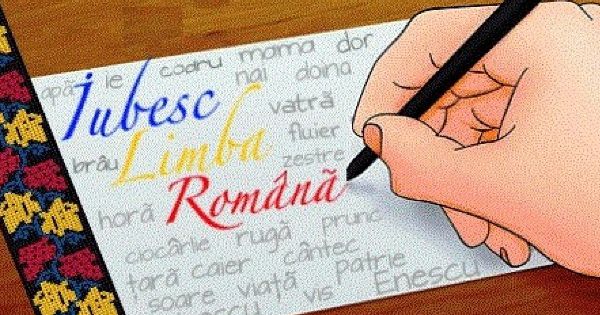 apă le codru mama dor
nai doina
Iubesc vatră
Limba fluier
brâu zestre
Română
horă
ciocârlie rugă prunc
țară caier cântec patrie
soare viață vis Enescu